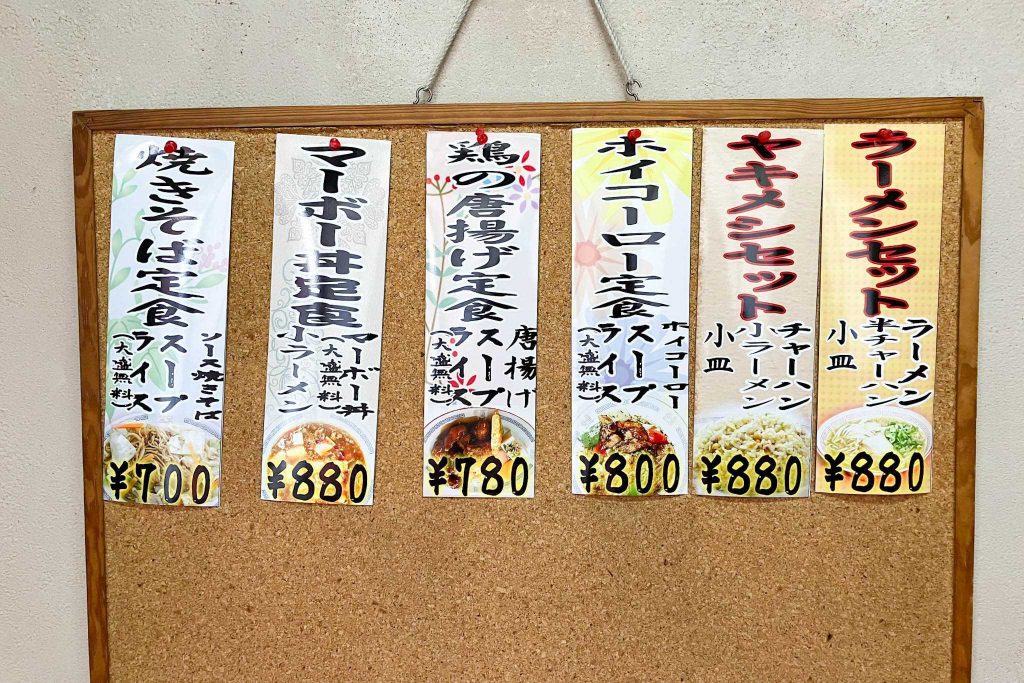 ラーメンセット
ラーメン
半チャーハン
小皿
¥880
ヤキメシセット
チャーハン
小ラーメン
小皿
¥880
ホイコーロー定食
ホイコーロー
スープ
ライス
(大盛無料)
¥800
鶏の唐揚げ定食
唐揚げ
スープ
ライス
(大盛無料)
¥780
マーボー丼定食
マーボー丼
(大盛無料)
小ラーメン
¥880
焼きそば定食
ソース焼きそば
スープ
ライス
(大盛無料)
¥700